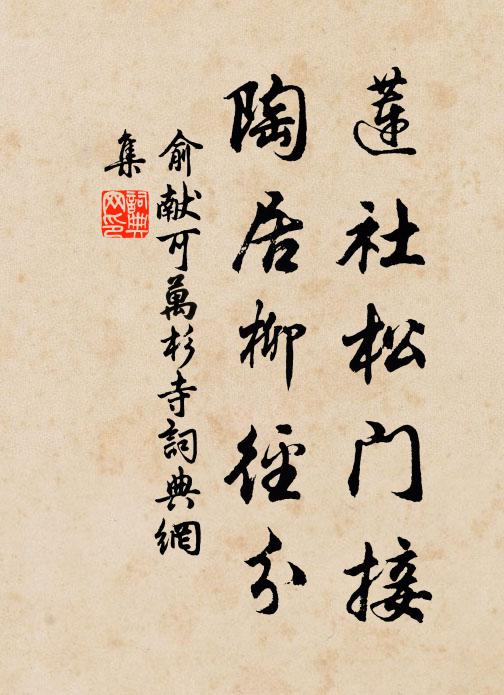 蓮社松门接
陶居柳径分
俞献可萬杉寺詞典網
集
詞典网印